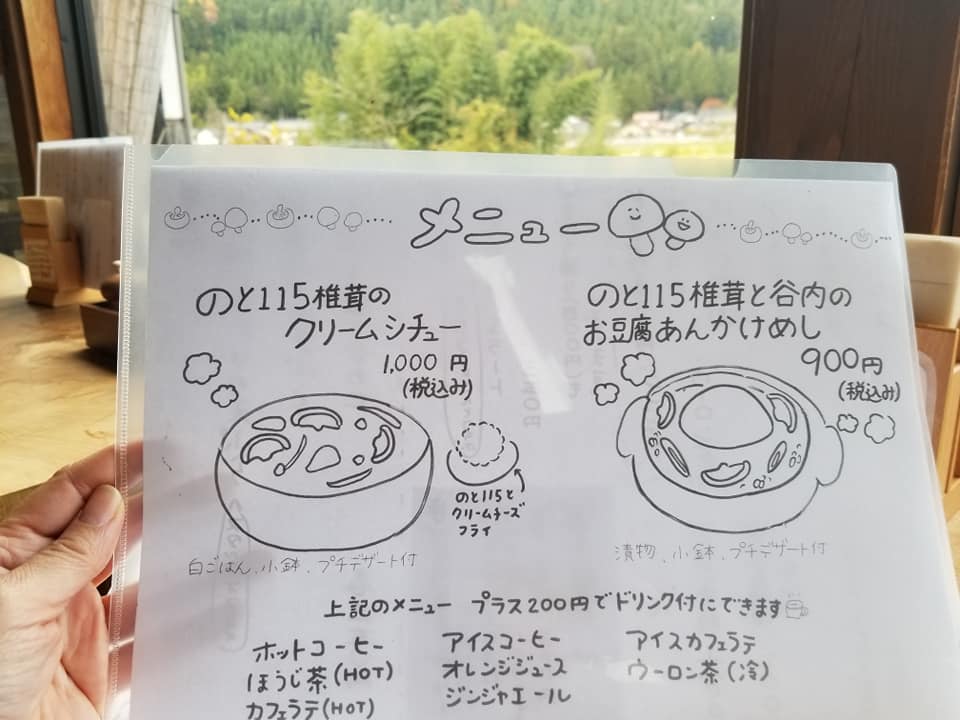 メニュー
のと115椎茸の
クリームシチュー
1,000 円
(税込み)
のと115と
クリームチーズ
フライ
白ごはん、小鉢、プチデザート付
のと115椎茸と谷内の
お豆腐あんかけめし
900円
(税込み)
漬物、小鉢、プチデザート付
上記のメニュー プラス200円でドリンク付にできます
ホットコーヒー
ほうじ茶(HOT)
カフェラテ(HOT)
アイスコーヒー
オレンジジュース
ジンジャエール
アイスカフェラテ
ウーロン茶(冷)